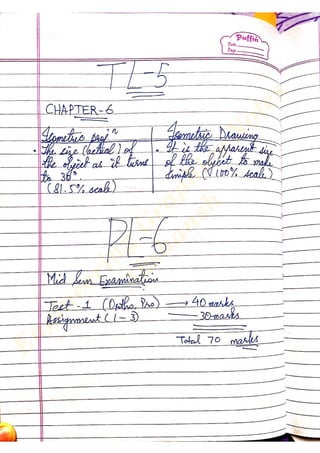 Puffin
Date
Page
TL-5
CHAPTER-6
Isometric projⁿ
• The size (actual) of
the object as it turns
to 30°
(81.5% scale)
Isometric Drawing
• It is the apparent size
of the object to make
simple (100% scale)
PL-6
Mid Sem Examination
Test-1 (Ortho, Pro) → 40 marks
Assignment (1-3) — 30 marks
Total 70 marks